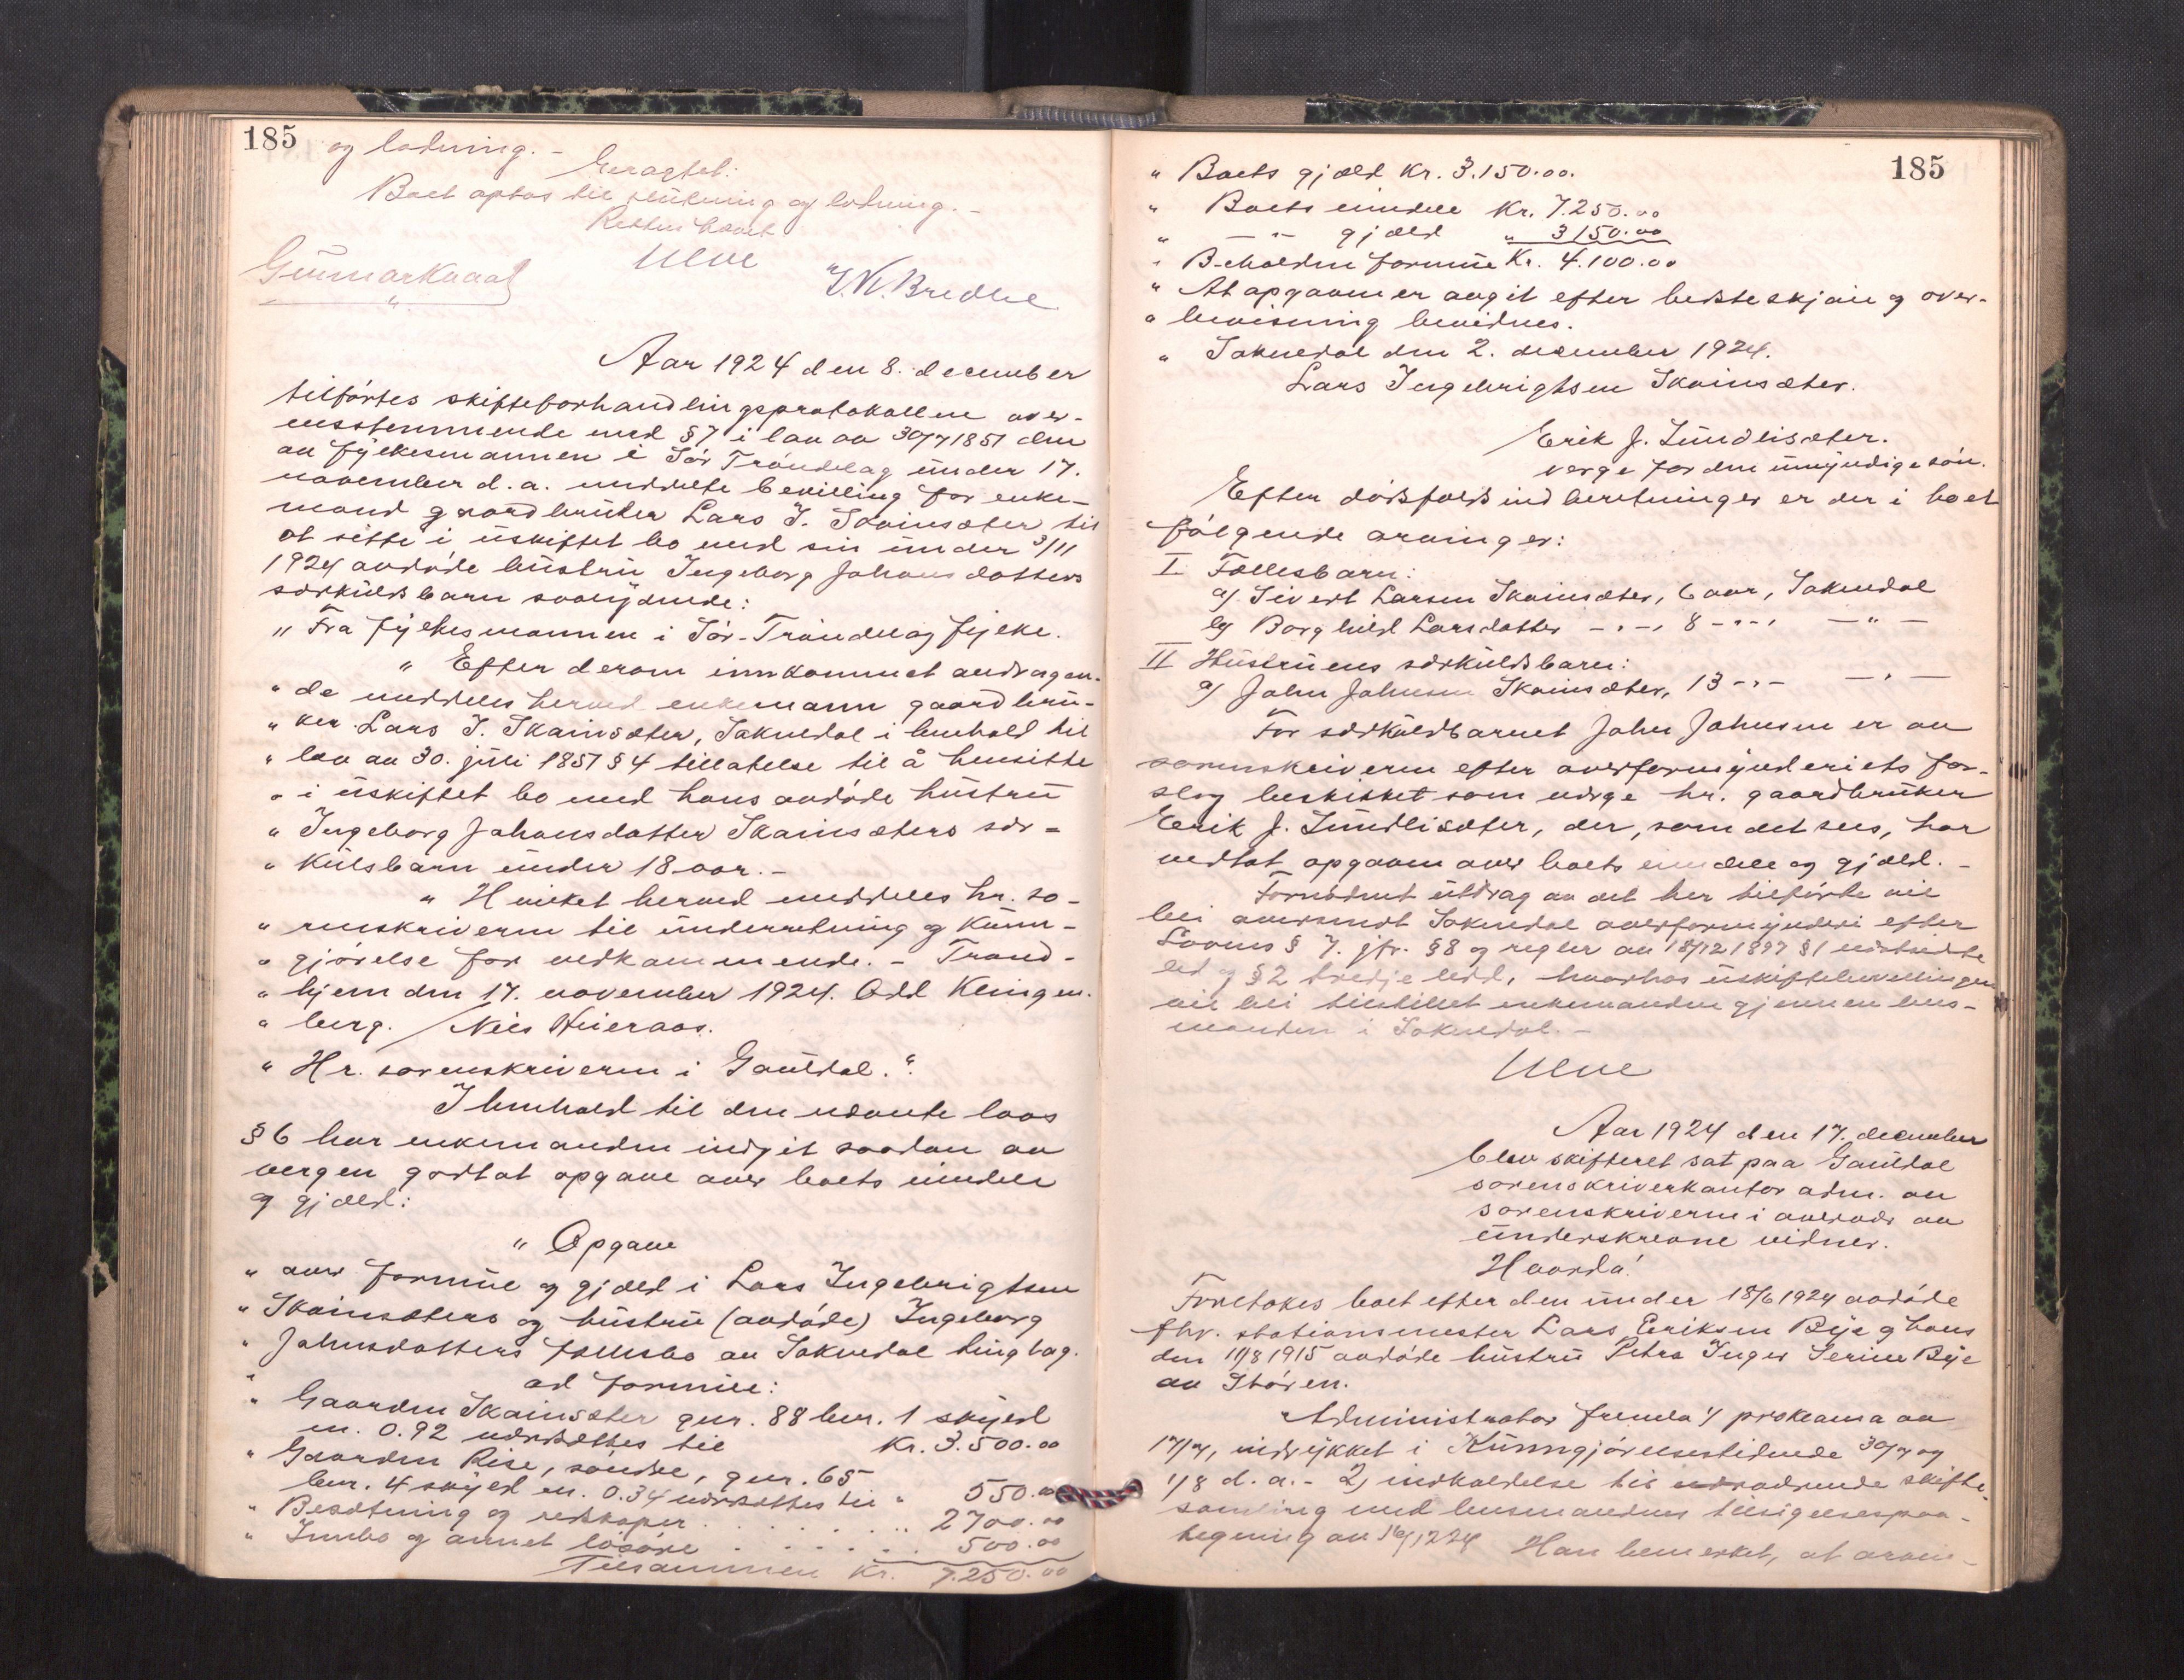 185
og lodning. -
Eragtet:
Boet optas til slutning og lodning. -
Retten hævet
Ulve
Gunnar Kaaal
I. N. Bredhe
Aar 1924 den 8. december
tilførtes skifteforhandlingsprotokollen over-
ensstemmende med § 7 i lov av 30/7 1851 den
av fylkesmannen i Sør Trøndelag under 17.
november d. a. meddelte bevilling for enke-
mand gaardbruker Lars I. Skainsæter til
at sitte i uskiftet bo med sin under 3/11
1924 avdøde hustru Ingeborg Johansdatters
særkuldsbarn saalydende:
" Fra fylkesmannen i Sør-Trøndelag fylke.
" Efter derom innkommet andragen-
" de meddeles herved enkemann gaardbru-
" ker Lars I. Skainsæter, Soknedal i henhold til
" lov av 30. juli 1851 § 4 tillatelse til å hensitte
" i uskiftet bo med hans avdøde hustru
" Ingeborg Johansdatter Skainsæters sær-
" kulsbarn under 18 aar. -
" Hvilket herved meddeles hr. so-
" renskriveren til underretning og kunn-
" gjørelse for vedkommende. - Trond-
" hjem den 17. november 1924. Odd Klingen-
" berg. / Neis Heieraas.
" Hr. sorenskriveren i Gauldal."
I henhold til den nævnte lovs
§ 6 har enkemanden indgit saadan av
vergen godtat opgave over boets eiendele
og gjæld:
" Opgave
" over formue og gjæld i Lars Ingebrigtsen
" Skainsæters og hustru (avdøde) Ingeborg
" Johnsdatters fællesbo av Soknedal tinglag.
" ad formue:
" Gaarden Skainsæter gnr. 88 bnr. 1 skyld
m. 0.92 værdsættes til Kr. 3.500.00
" Gaarden Rise, søndre, gnr. 65
bnr. 4 skyld m. 0.34 værdsættes til " 550.00
" Besætning og redskaper . . . . . . . 2700.00
" Innbo og annet løsøre . . . . . . 500.00
Tilsammen Kr. 7.250.00
185
" Boets gjæld Kr. 3.150.00.
" Boets eiendele Kr. 7.250.00
" -"- gjæld " 3150.00
" Beholden formue Kr. 4.100.00
" At opgaven er avgit efter bedste skjøn og over-
" bevisning bevidnes.
" Soknedal den 2. desember 1924.
Lars Ingebrigtsen Skainsæter.
Erik J. Lundlisæter.
verge for den umyndige søn.
Efter dødsfaldsindberetninger er der i boet
følgende arvinger:
I Fællesbarn:
a) Sivert Larsen Skainsæter, 6 aar, Soknedal
b) Borghild Larsdatter -"-, 8 -"-, -"-
II Hustruens særkuldsbarn:
a) John Johnsen Skainsæter, 13 -"- -"-
For særkuldbarnet John Johnsen er av
sorenskriveren efter overformynderiets for-
slag beskikket som verge hr. gaardbruker
Erik J. Lundlisæter, der, som det sees, har
vedtat opgaven over boets eiendele og gjæld. -
Fornødent utdrag av det her tilførte vil
bli oversendt Soknedal overformynderi efter
Lovens § 7. jfr. § 8 og regler av 18/12 1897 § 1
led og § 2 tredje ledd, hvorhos uskiftebevillingen
vil bli tilstillet enkemanden gjennem lens-
manden i Soknedal. -
Ulve
Aar 1924 den 17. december
blev skifteret sat paa Gauldal
sorenskriverkontor adm. av
sorenskriveren i overvær av
underskrevne vidner.
Hvorda!
Foretokes boet efter den under 18/6 1924 avdøde
fhv. stationsmester Lars Eriksen Bye og hans
den 11/8 1915 avdøde hustru Petra Inger Serine Bye
av Støren.
Administrator fremla 1) proklama av
17/7, indrykket i Kunngjørelsestidende 30/7 og
1/8 d. a. - 2) indkaldelse til nærværende skifte-
samling med lensmandens tilsigelsespaa-
tegning av 16/12 24 Han bemerket, at arvin-